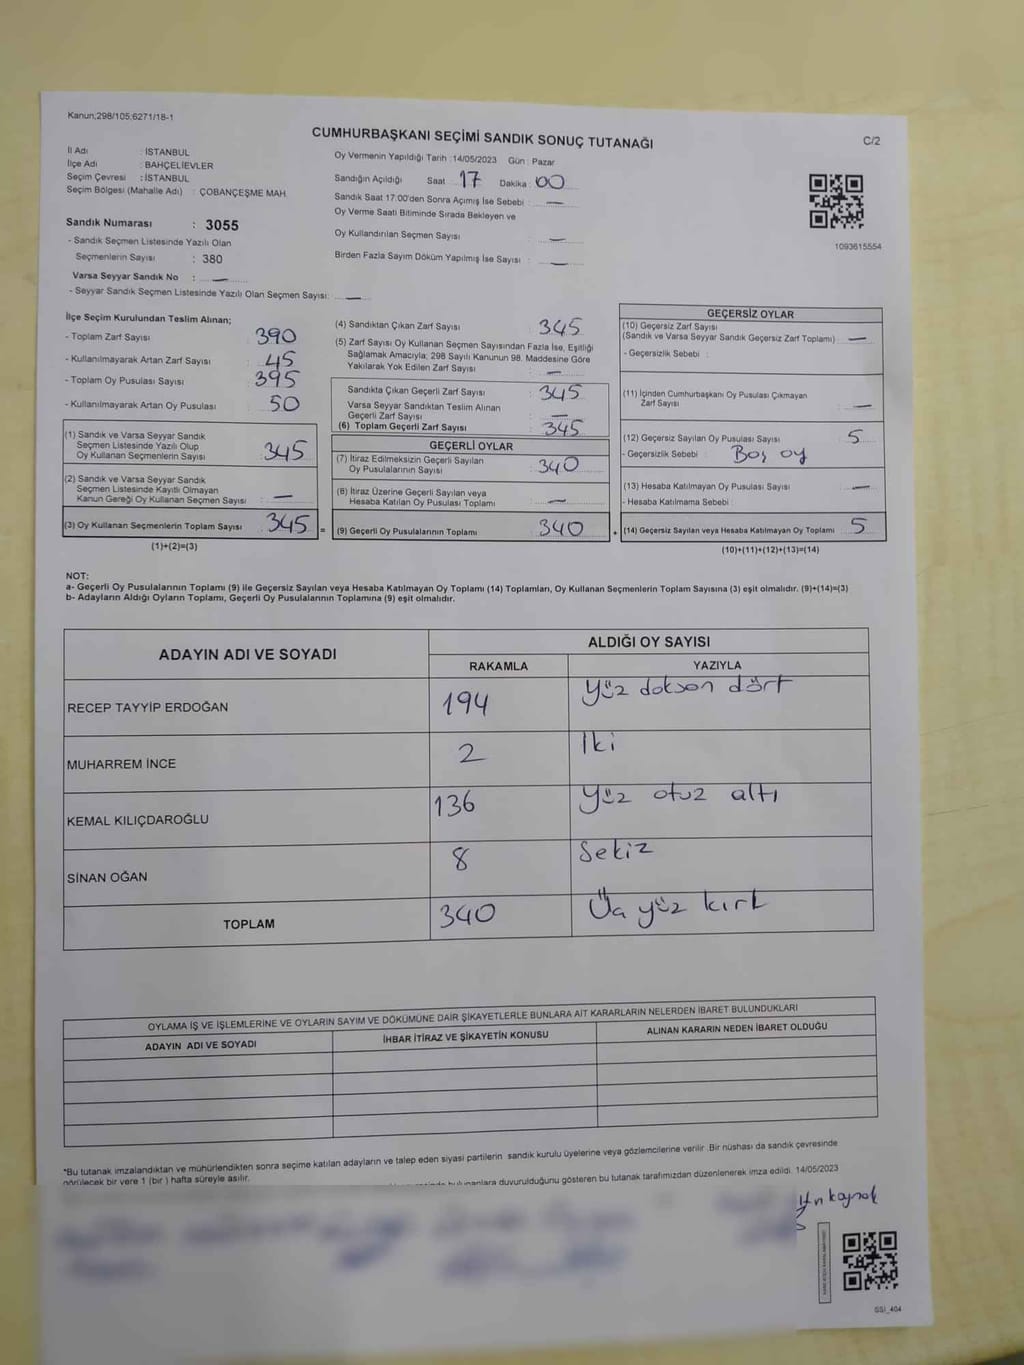 Kanun;298/105;6271/18-1
CUMHURBAŞKANI SEÇİMİ SANDIK SONUÇ TUTANAĞI
C/2
İl Adı : İSTANBUL
İlçe Adı : BAHÇELİEVLER
Seçim Çevresi : İSTANBUL
Seçim Bölgesi (Mahalle Adı) : ÇOBANÇEŞME MAH.
Sandık Numarası : 3055
- Sandık Seçmen Listesinde Yazılı Olan
Seçmenlerin Sayısı : 380
Varsa Seyyar Sandık No : —
- Seyyar Sandık Seçmen Listesinde Yazılı Olan Seçmen Sayısı: —
Oy Vermenin Yapıldığı Tarih :14/05/2023 Gün : Pazar
Sandığın Açıldığı Saat 17 Dakika : 00
Sandık Saat 17.00'den Sonra Açımış İse Sebebi : —
Oy Verme Saati Bitiminde Sırada Bekleyen ve
Oy Kullandırılan Seçmen Sayısı : —
Birden Fazla Sayım Döküm Yapılmış İse Sayısı : —
1093615554
İlçe Seçim Kurulundan Teslim Alınan;
- Toplam Zarf Sayısı : 390
- Kullanılmayarak Artan Zarf Sayısı : 45
- Toplam Oy Pusulası Sayısı : 395
- Kullanılmayarak Artan Oy Pusulası : 50
(1) Sandık ve Varsa Seyyar Sandık
Seçmen Listesinde Yazılı Olup
Oy Kullanan Seçmenlerin Sayısı : 345
(2) Sandık ve Varsa Seyyar Sandık
Seçmen Listesinde Kayıtlı Olmayan
Kanun Gereği Oy Kullanan Seçmen Sayısı : —
(3) Oy Kullanan Seçmenlerin Toplam Sayısı : 345 =
(1)+(2)=(3)
(4) Sandıktan Çıkan Zarf Sayısı : 345
(5) Zarf Sayısı Oy Kullanan Seçmen Sayısından Fazla İse, Eşitliği
Sağlamak Amacıyla; 298 Sayılı Kanunun 98. Maddesine Göre
Yakılarak Yok Edilen Zarf Sayısı : —
Sandıkta Çıkan Geçerli Zarf Sayısı : 345
Varsa Seyyar Sandıktan Teslim Alınan
Geçerli Zarf Sayısı : —
(6) Toplam Geçerli Zarf Sayısı : 345
GEÇERLİ OYLAR
(7) İtiraz Edilmeksizin Geçerli Sayılan
Oy Pusulalarının Sayısı : 340
(8) İtiraz Üzerine Geçerli Sayılan veya
Hesaba Katılan Oy Pusulası Toplamı : —
(9) Geçerli Oy Pusulalarının Toplamı : 340 +
GEÇERSİZ OYLAR
(10) Geçersiz Zarf Sayısı
(Sandık ve Varsa Seyyar Sandık Geçersiz Zarf Toplamı) : —
- Geçersizlik Sebebi :
(11) İçinden Cumhurbaşkanı Oy Pusulası Çıkmayan
Zarf Sayısı : —
(12) Geçersiz Sayılan Oy Pusulası Sayısı : 5
- Geçersizlik Sebebi : Boş oy
(13) Hesaba Katılmayan Oy Pusulası Sayısı : —
- Hesaba Katılmama Sebebi :
(14) Geçersiz Sayılan veya Hesaba Katılmayan Oy Toplamı : 5
(10)+(11)+(12)+(13)=(14)
NOT:
a- Geçerli Oy Pusulalarının Toplamı (9) ile Geçersiz Sayılan veya Hesaba Katılmayan Oy Toplamı (14) Toplamları, Oy Kullanan Seçmenlerin Toplam Sayısına (3) eşit olmalıdır. (9)+(14)=(3)
b- Adayların Aldığı Oyların Toplamı, Geçerli Oy Pusulalarının Toplamına (9) eşit olmalıdır.
ADAYIN ADI VE SOYADI
ALDIĞI OY SAYISI
RAKAMLA YAZIYLA
RECEP TAYYİP ERDOĞAN 194 Yüz doksan dört
MUHARREM İNCE 2 İki
KEMAL KILIÇDAROĞLU 136 Yüz otuz altı
SİNAN OĞAN 8 Sekiz
TOPLAM 340 Üç yüz kırk
OYLAMA İŞ VE İŞLEMLERİNE VE OYLARIN SAYIM VE DÖKÜMÜNE DAİR ŞİKAYETLERLE BUNLARA AİT KARARLARIN NELERDEN İBARET BULUNDUKLARI
ADAYIN ADI VE SOYADI İHBAR İTİRAZ VE ŞİKAYETİN KONUSU ALINAN KARARIN NEDEN İBARET OLDUĞU
*Bu tutanak imzalandıktan ve mühürlendikten sonra seçime katılan adayların ve talep eden siyasi partilerin sandık kurulu üyelerine veya gözlemcilerine verilir. Bir nüshası da sandık çevresinde
görülecek bir yere 1 (bir) hafta süreyle asılır.
duyurulduğunu gösteren bu tutanak tarafımızdan düzenlenerek imza edildi. 14/05/2023
kaynak
SSI_404